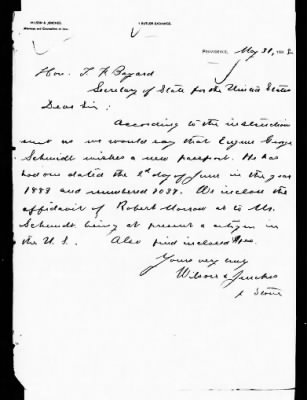 WILSON & JENCKES,
Attorneys and Counsellors at Law.
1 BUTLER EXCHANGE.
PROVIDENCE, May 31, 188
Hon. T. F. Bayard
Secretary of State for the United States
Dear Sir:
According to the instruction
sent us we would say that Eugene
Schmidt wishes a new passport. He has
had one dated the 2d day of June in the year
1883 and numbered We inclose the
affidavit of Robert Morrow as to Mr.
Schmidt being at present a citizen in
the U. S. Also find inclosed fee.
Yours very truly
Wilson & Jenckes